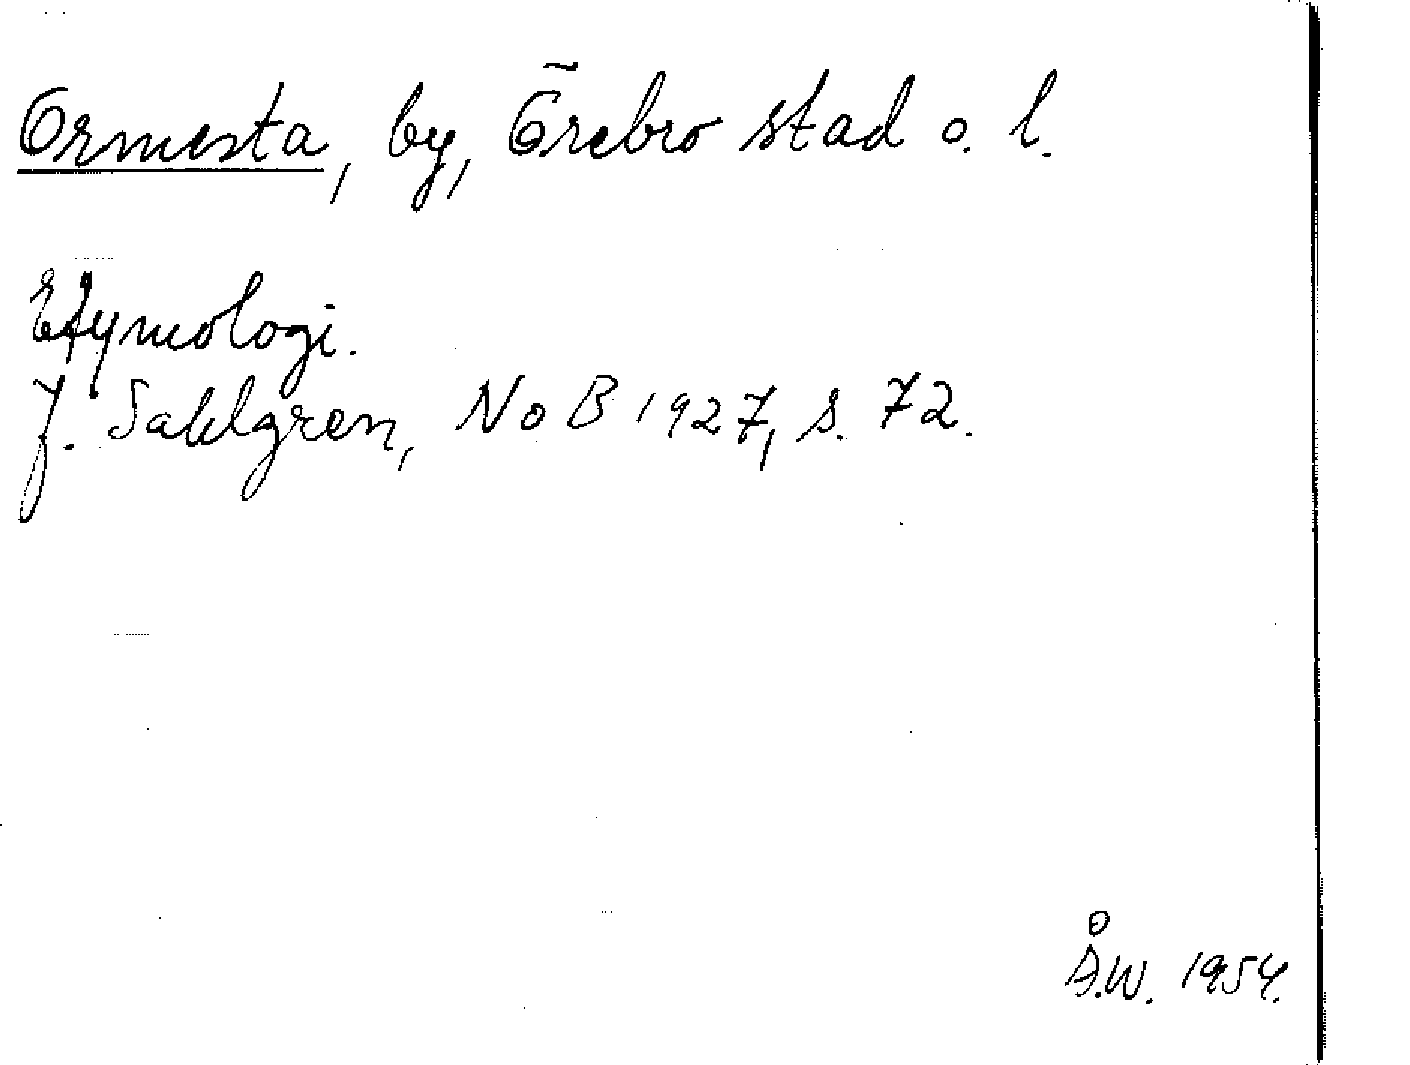 Ormesta, by, Örebro stad o. l.
Etymologi.
J. Sahlgren, NoB 1927, s. 72.
Å.W. 1954.